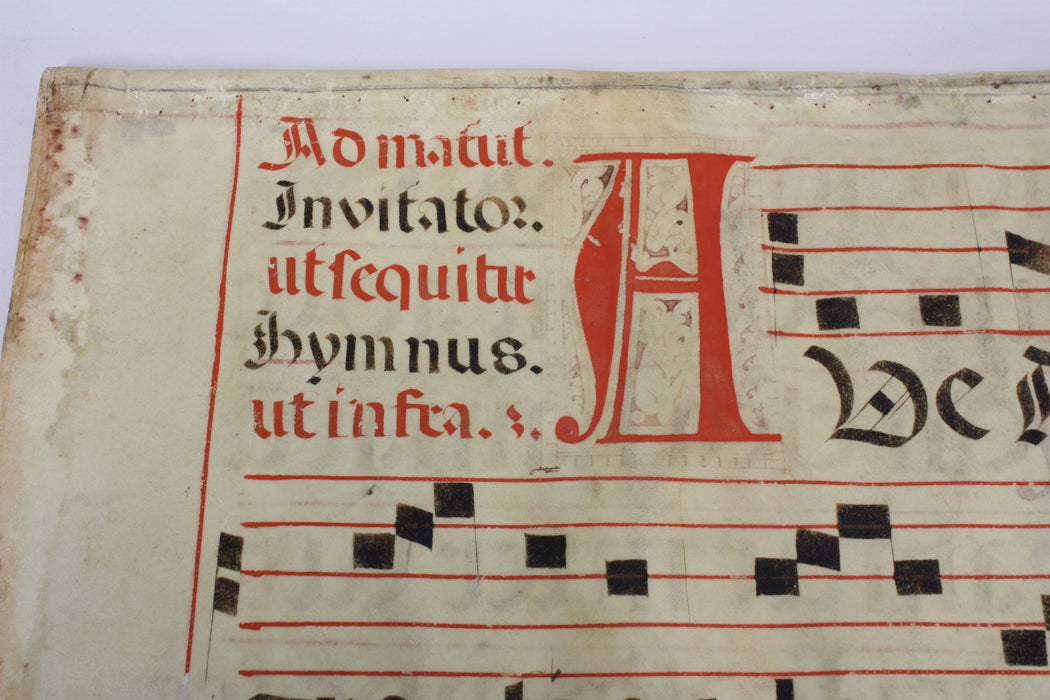 Ad matut.
Invitator.
ut sequitur
hymnus.
ut infra. 3.
AVe